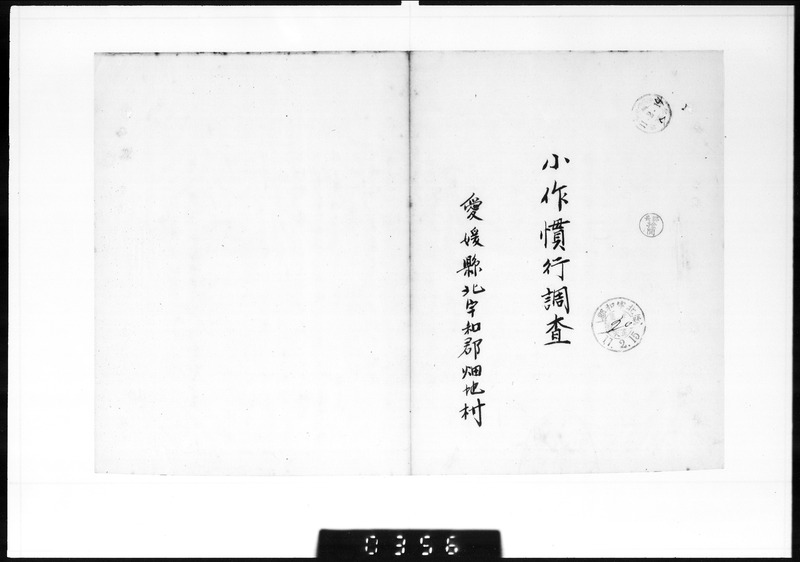 小作慣行調査
愛媛縣北宇和郡畑地村
17.2.15
0356